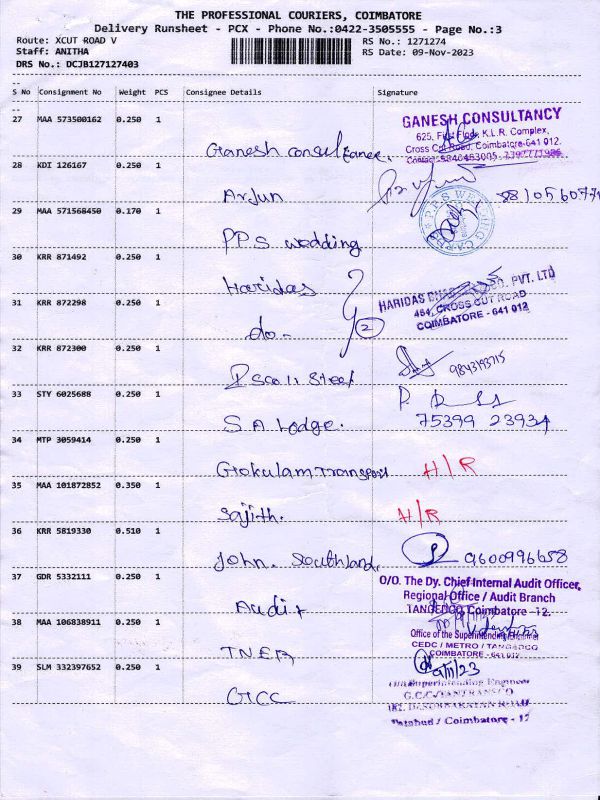 THE PROFESSIONAL COURIERS, COIMBATORE
Delivery Runsheet - PCX - Phone No.:0422-3505555 - Page No.:3
Route: XCUT ROAD V RS No.: 1271274
Staff: ANITHA RS Date: 09-Nov-2023
DRS No.: DCJB127127403
S No Consignment No Weight PCS Consignee Details Signature
27 MAA 573500162 0.250 1
GANESH CONSULTANCY
625, First Floor, K.L.R. Complex,
Cross Cut Road, Coimbatore-641 012.
Ganesh consultance.
28 KDI 126167 0.250 1
Arjun
29 MAA 571568450 0.170 1
PPS WEDDING CARDS
PPS wedding
30 KRR 871492 0.250 1
Haridas
HARIDAS CO. PVT. LTD
464, CROSS CUT ROAD
COIMBATORE - 641 012
31 KRR 872298 0.250 1
do- 2
32 KRR 872300 0.250 1
Street 9843193715
33 STY 6025688 0.250 1
S.A. Lodge. 75399 23934
34 MTP 3059414 0.250 1
Gokulam Transport H/R
35 MAA 101872852 0.350 1
Sajith. H/R
36 KRR 5819330 0.510 1
John. Southland. 9600996658
37 GDR 5332111 0.250 1
O/O. The Dy. Chief Internal Audit Officer,
Regional Office / Audit Branch
TANGEDCO, Coimbatore - 12.
Audit
38 MAA 106838911 0.250 1
Office of the Superintending Engineer
CEDC / METRO / TANGEDCO
COIMBATORE - 641 012
TNEB
39 SLM 332397652 0.250 1
9/11/23
O/o Superintending Engineer
G.C.C/TANTRANSCO
Tatabad / Coimbatore - 12
GCC